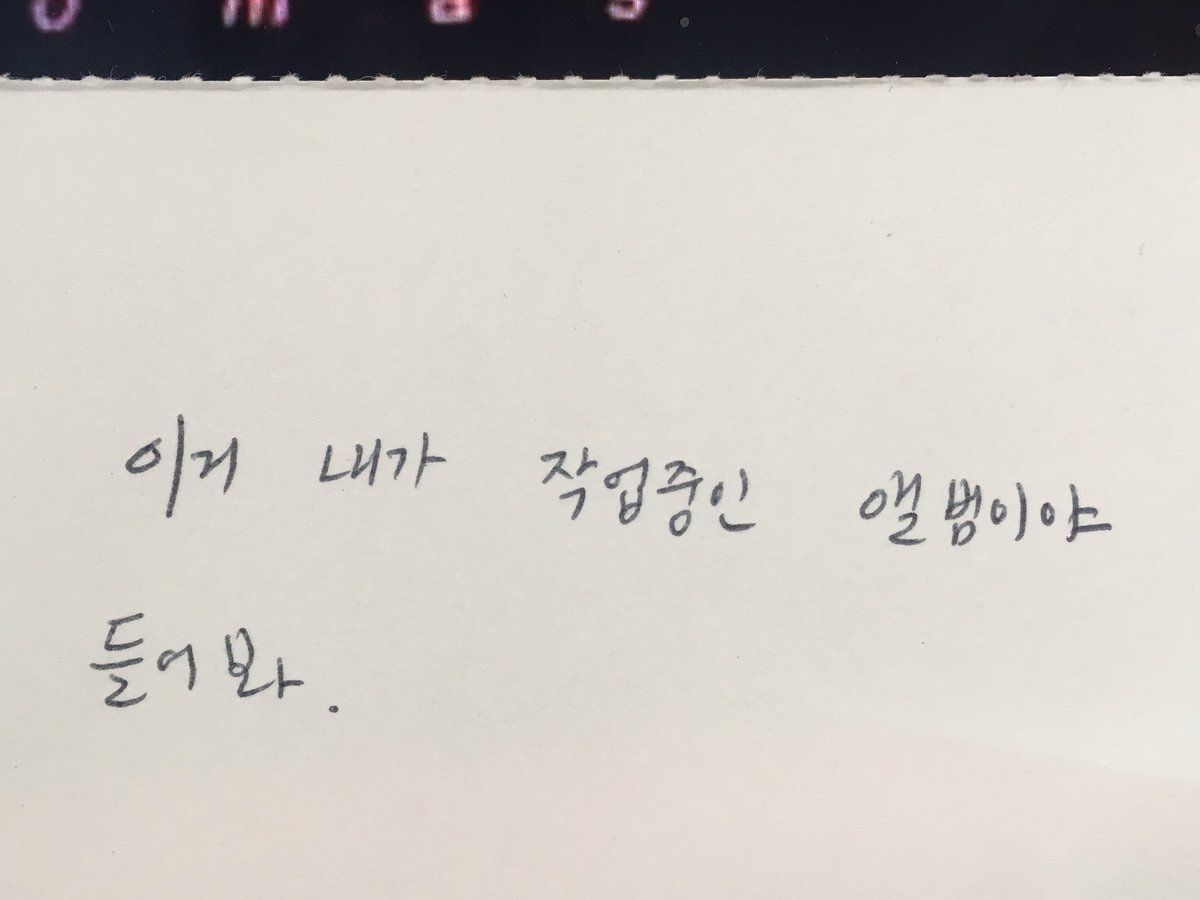 o m a s
이거 내가 작업중인 앨범이야
들어봐.